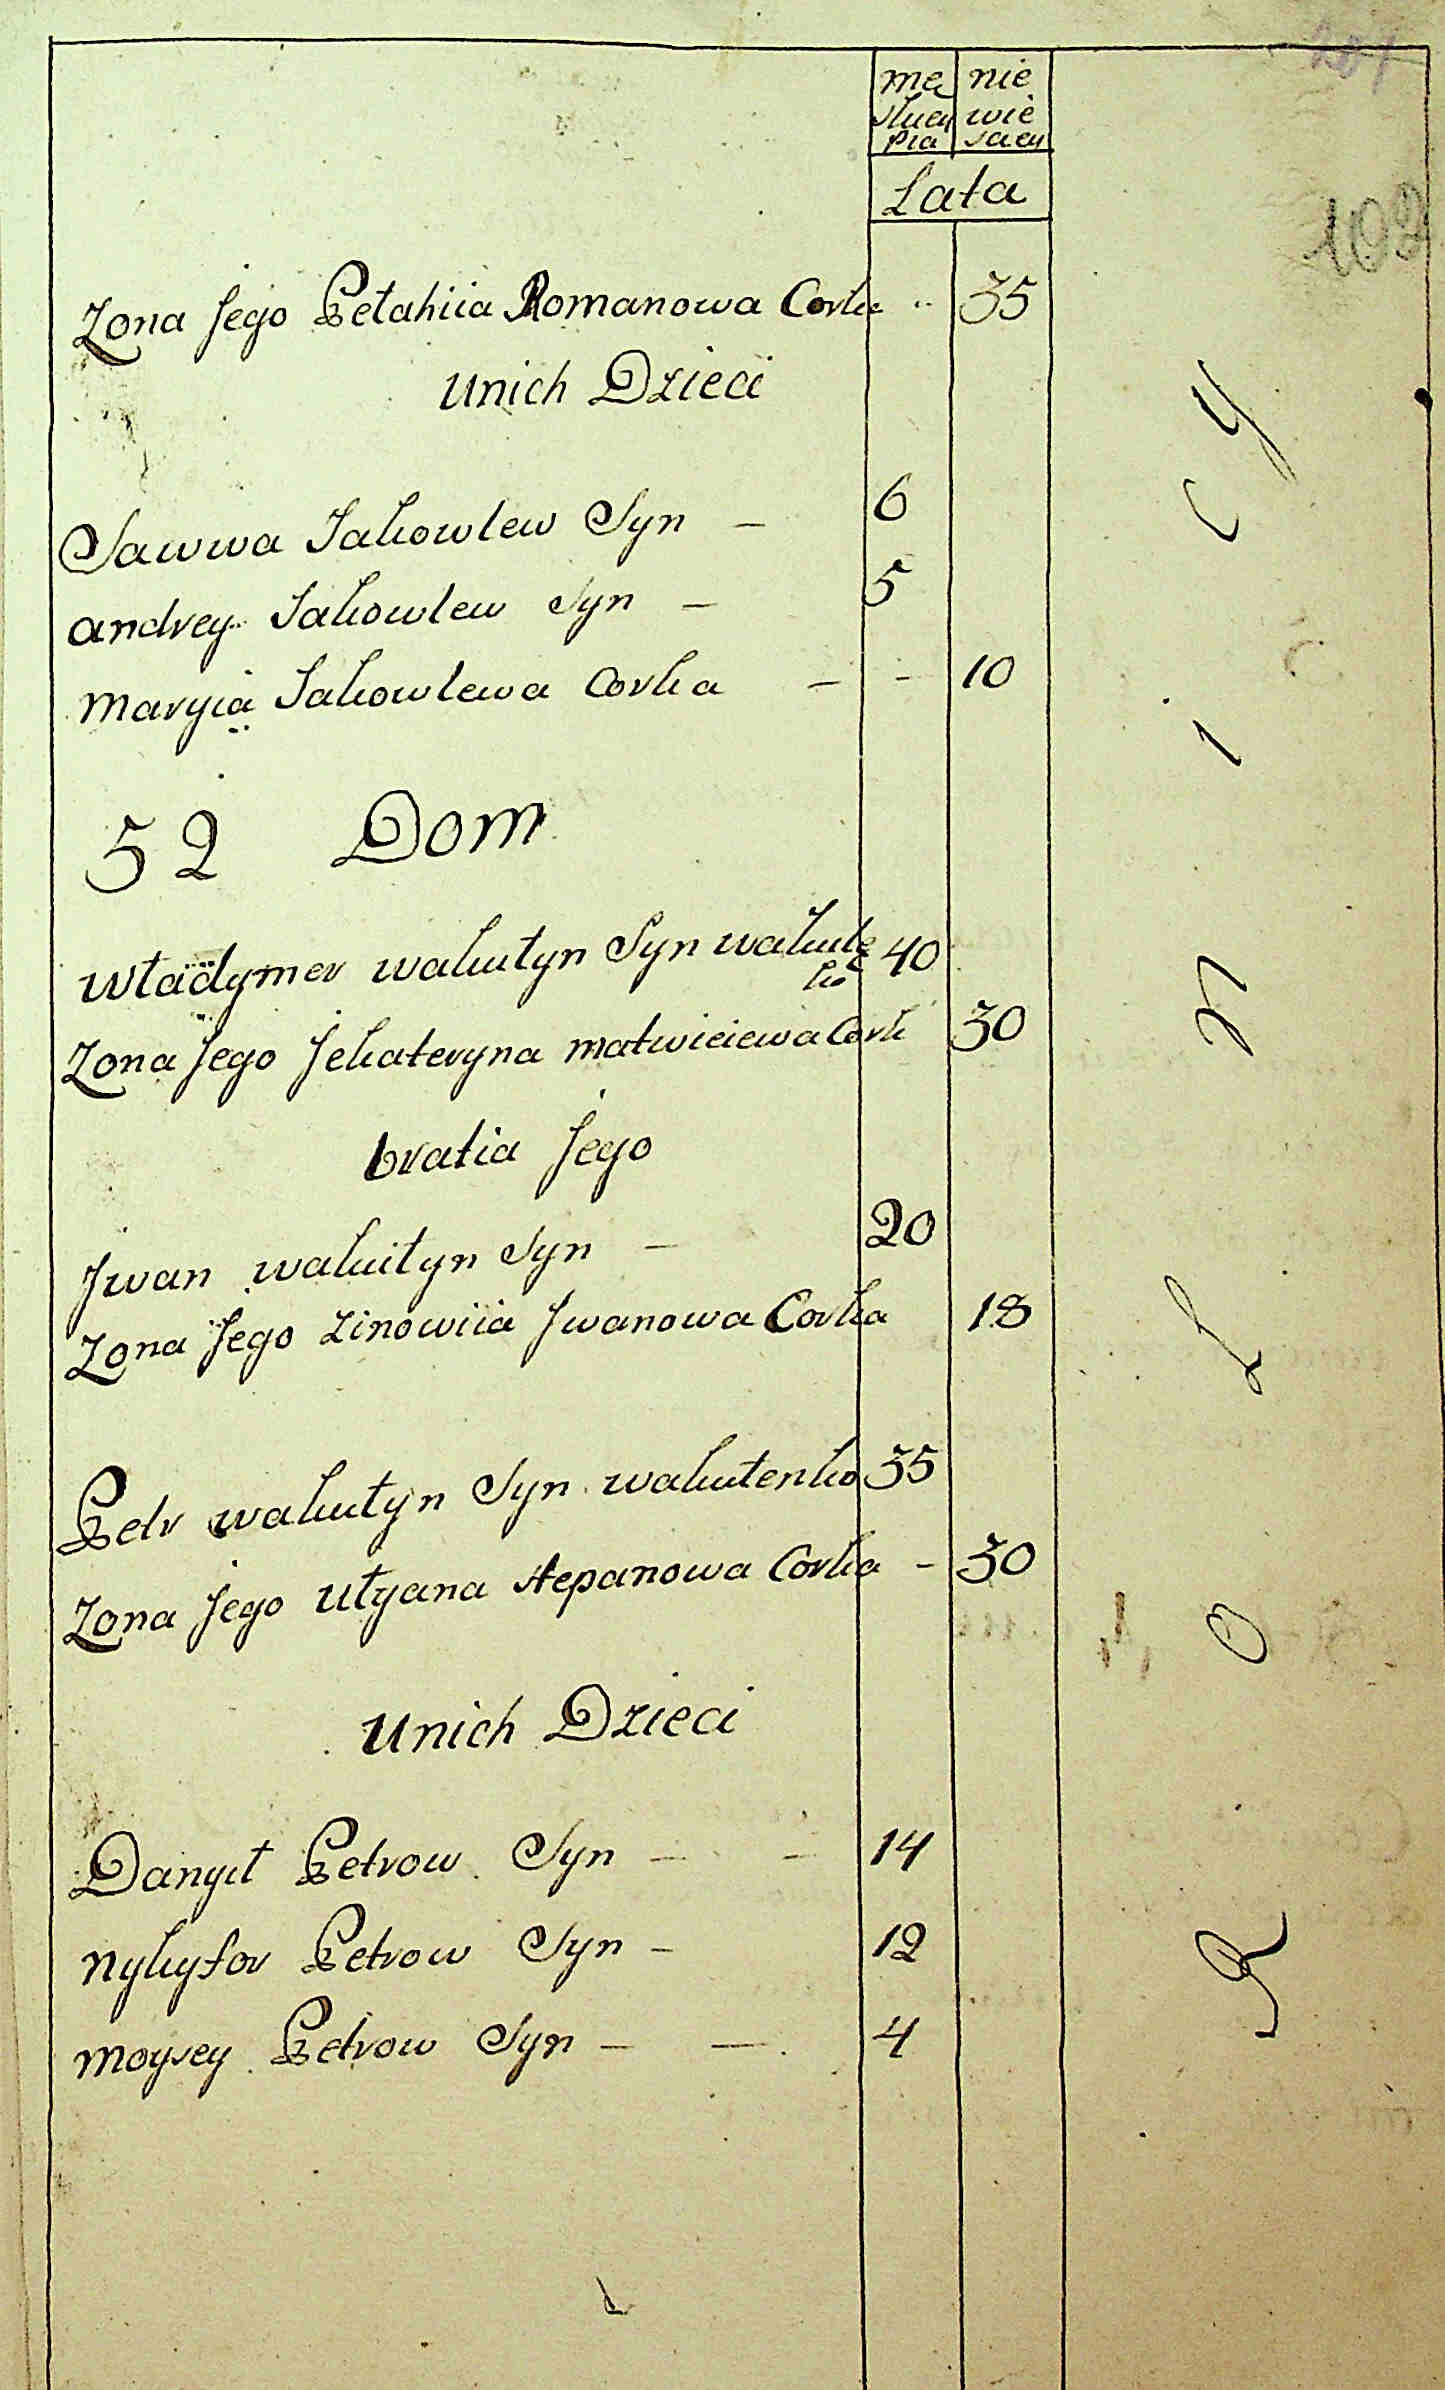 mę nie
skiey wie
płcia sciey
Lata
109
Zona Jego Petahiia Romanowa Corka 35
Unich Dzieci
Sawwa Jakowlew Syn — 6
Andrey Jakowlew Syn — 5
Maryia Jakowlewa Corka — - 10
52 Dom
Władymer wakułyn Syn wakułe 40
ko
Zona Jego Jekateryna matwieiewa Cork 30
bratia Jego
Jwan wakułyn Syn — 20
Zona Jego Zinowiia Jwanowa Corka 18
Petr wakułyn Syn wakułenko 35
Zona Jego Ułyana stepanowa Corka - 30
Unich Dzieci
Danyił Petrow Syn — - 14
Nykyfor Petrow Syn — 12
Moysey Petrow Syn — — 4
R o l n i c y